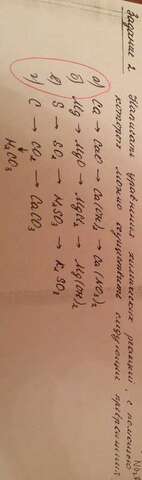 Задание 2
Написать уравнения химических реакций, с помощью
которых можно осуществить следующие превращения
а) Ca → CaO → Ca(OH)₂ → Ca(NO₃)₂
б) Mg → MgO → MgCl₂ → Mg(OH)₂
в) S → SO₂ → H₂SO₃ → K₂SO₃
г) C → CO₂ → CaCO₃
↓
H₂CO₃